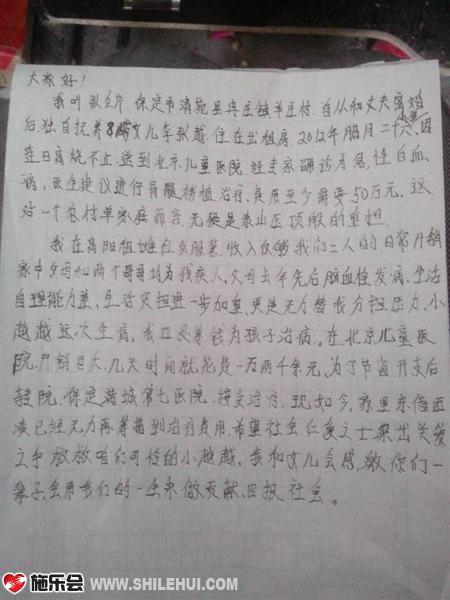 大家好！
我叫张 保定市清苑县冉庄镇羊庄村.自从和丈夫离婚
后,独自抚养8岁女儿李张越,住在出租房.2012年腊月二十六,因
连日高烧不止,送到北京儿童医院,经专家确诊为急性白血
病,医生建议进行骨髓移植治疗,费用至少需要50万元,这
对一个农村单家庭而言,无疑是泰山压顶般的重担.
我在高阳租摊位卖服装,收入仅够我们二人的日常开销
家中父母和两个哥哥均为残疾人,父母去年先后脑血栓发病,生活
自理能力差,生活负担进一步加重,更是无力替我分担压力.小
越越这次生病,我四处筹钱为孩子治病,在北京儿童医
院,开销巨大,几天时间就花费一万两千余元,为了节省开支后
转院,保定满城第七医院,接受治疗.现如今,家里东借西
凑已经无力再筹措到治疗费用.希望社会仁爱之士举出关爱
之手救救咱们可怜的小越越,我和女儿会感激你们一
辈子,会用我们的一生来做贡献,回报社会。
施乐会 WWW.SHILEHUI.COM